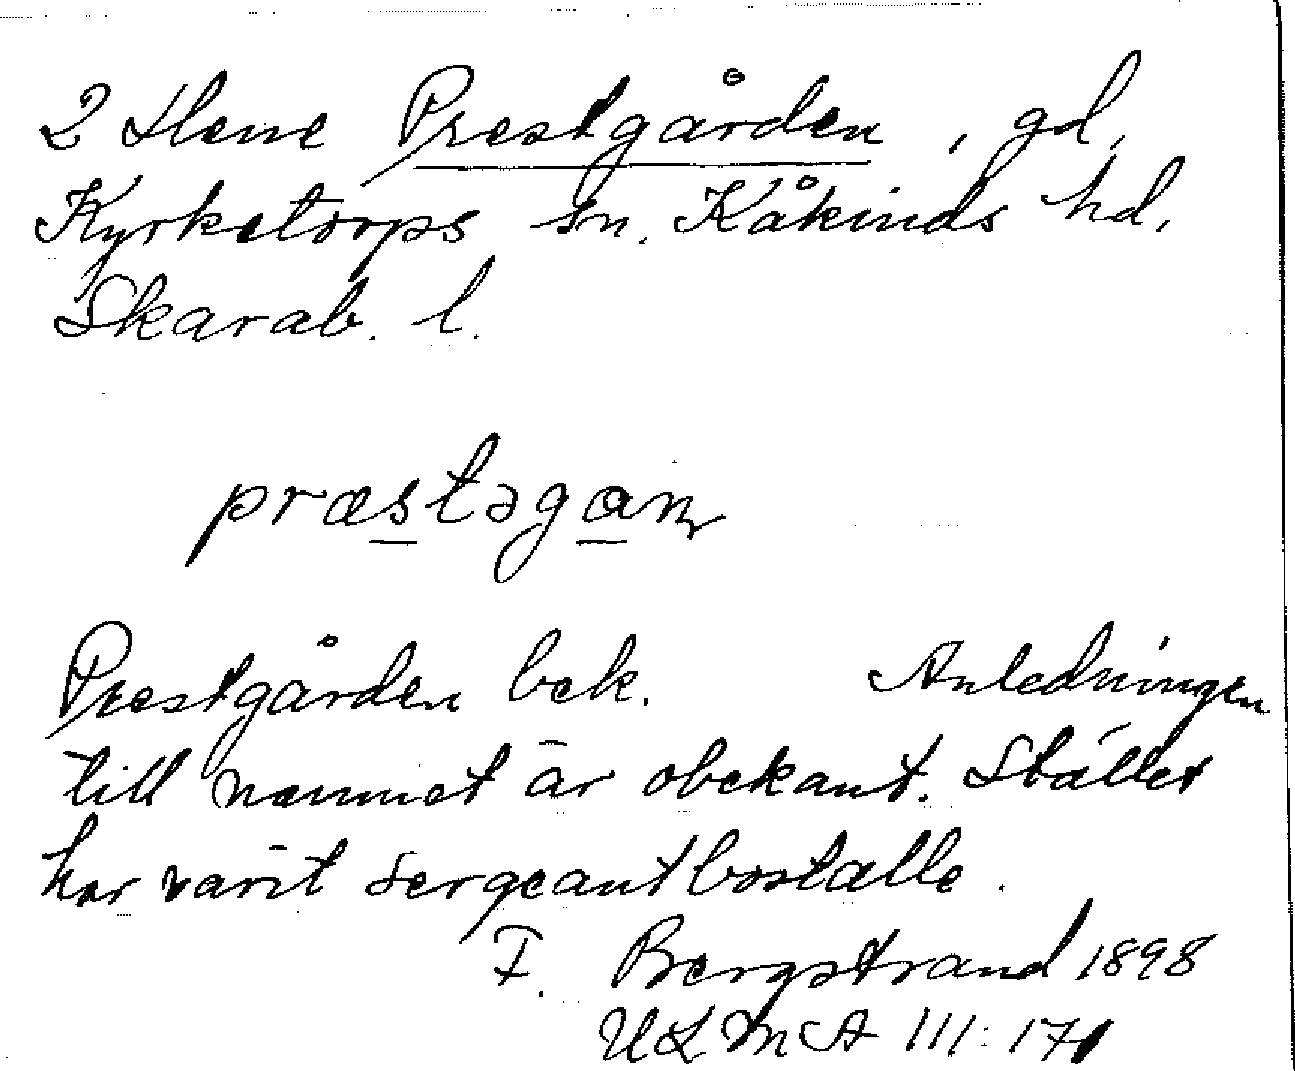 2 Hene Prestgården, gd,
Kyrketorps sn. Kåkinds hd,
Skarab. l.
præstəgan
Prestgården bek. Anledningen
till namnet är obekant. Stället
har varit sergeantboställe.
F. Bergstrand 1898
ULMA 111: